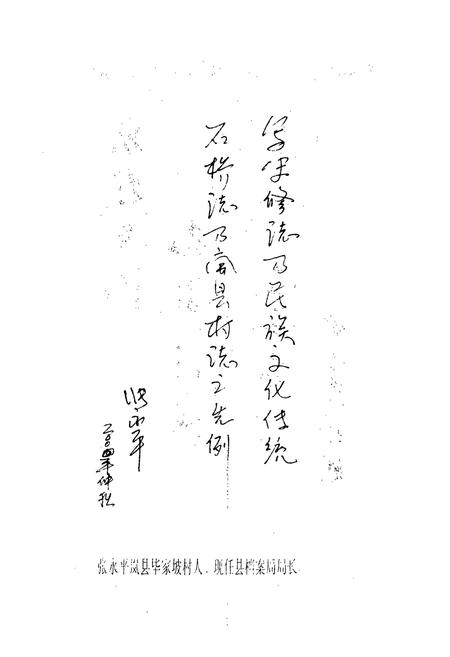 写史修誌乃民族文化传统
石桥誌乃岚县村誌之先例
张永平
二〇〇四年仲秋
张永平岚县毕家坡村人、现任县档案局局长